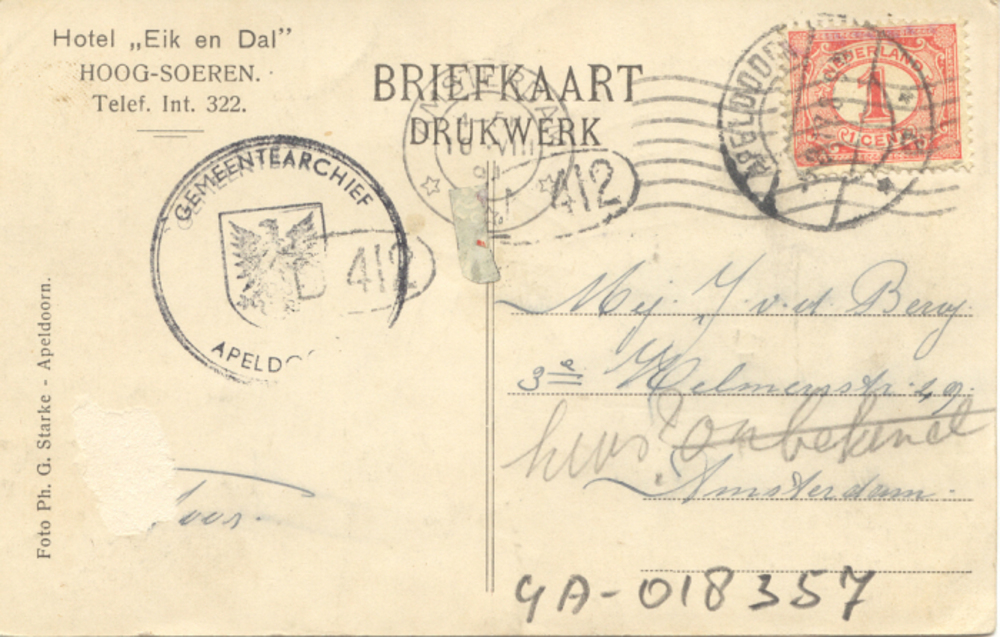 Hotel „Eik en Dal”
HOOG-SOEREN.
Telef. Int. 322.
BRIEFKAART
DRUKWERK
NEDERLAND
1
1 CENT
APELDOORN
412
GEMEENTEARCHIEF
412
APELDO
Mej. J v. d. Berg
3e Helmersstr. 49.
huis onbekend
Amsterdam.
Foto Ph. G. Starke - Apeldoorn.
GA-018357